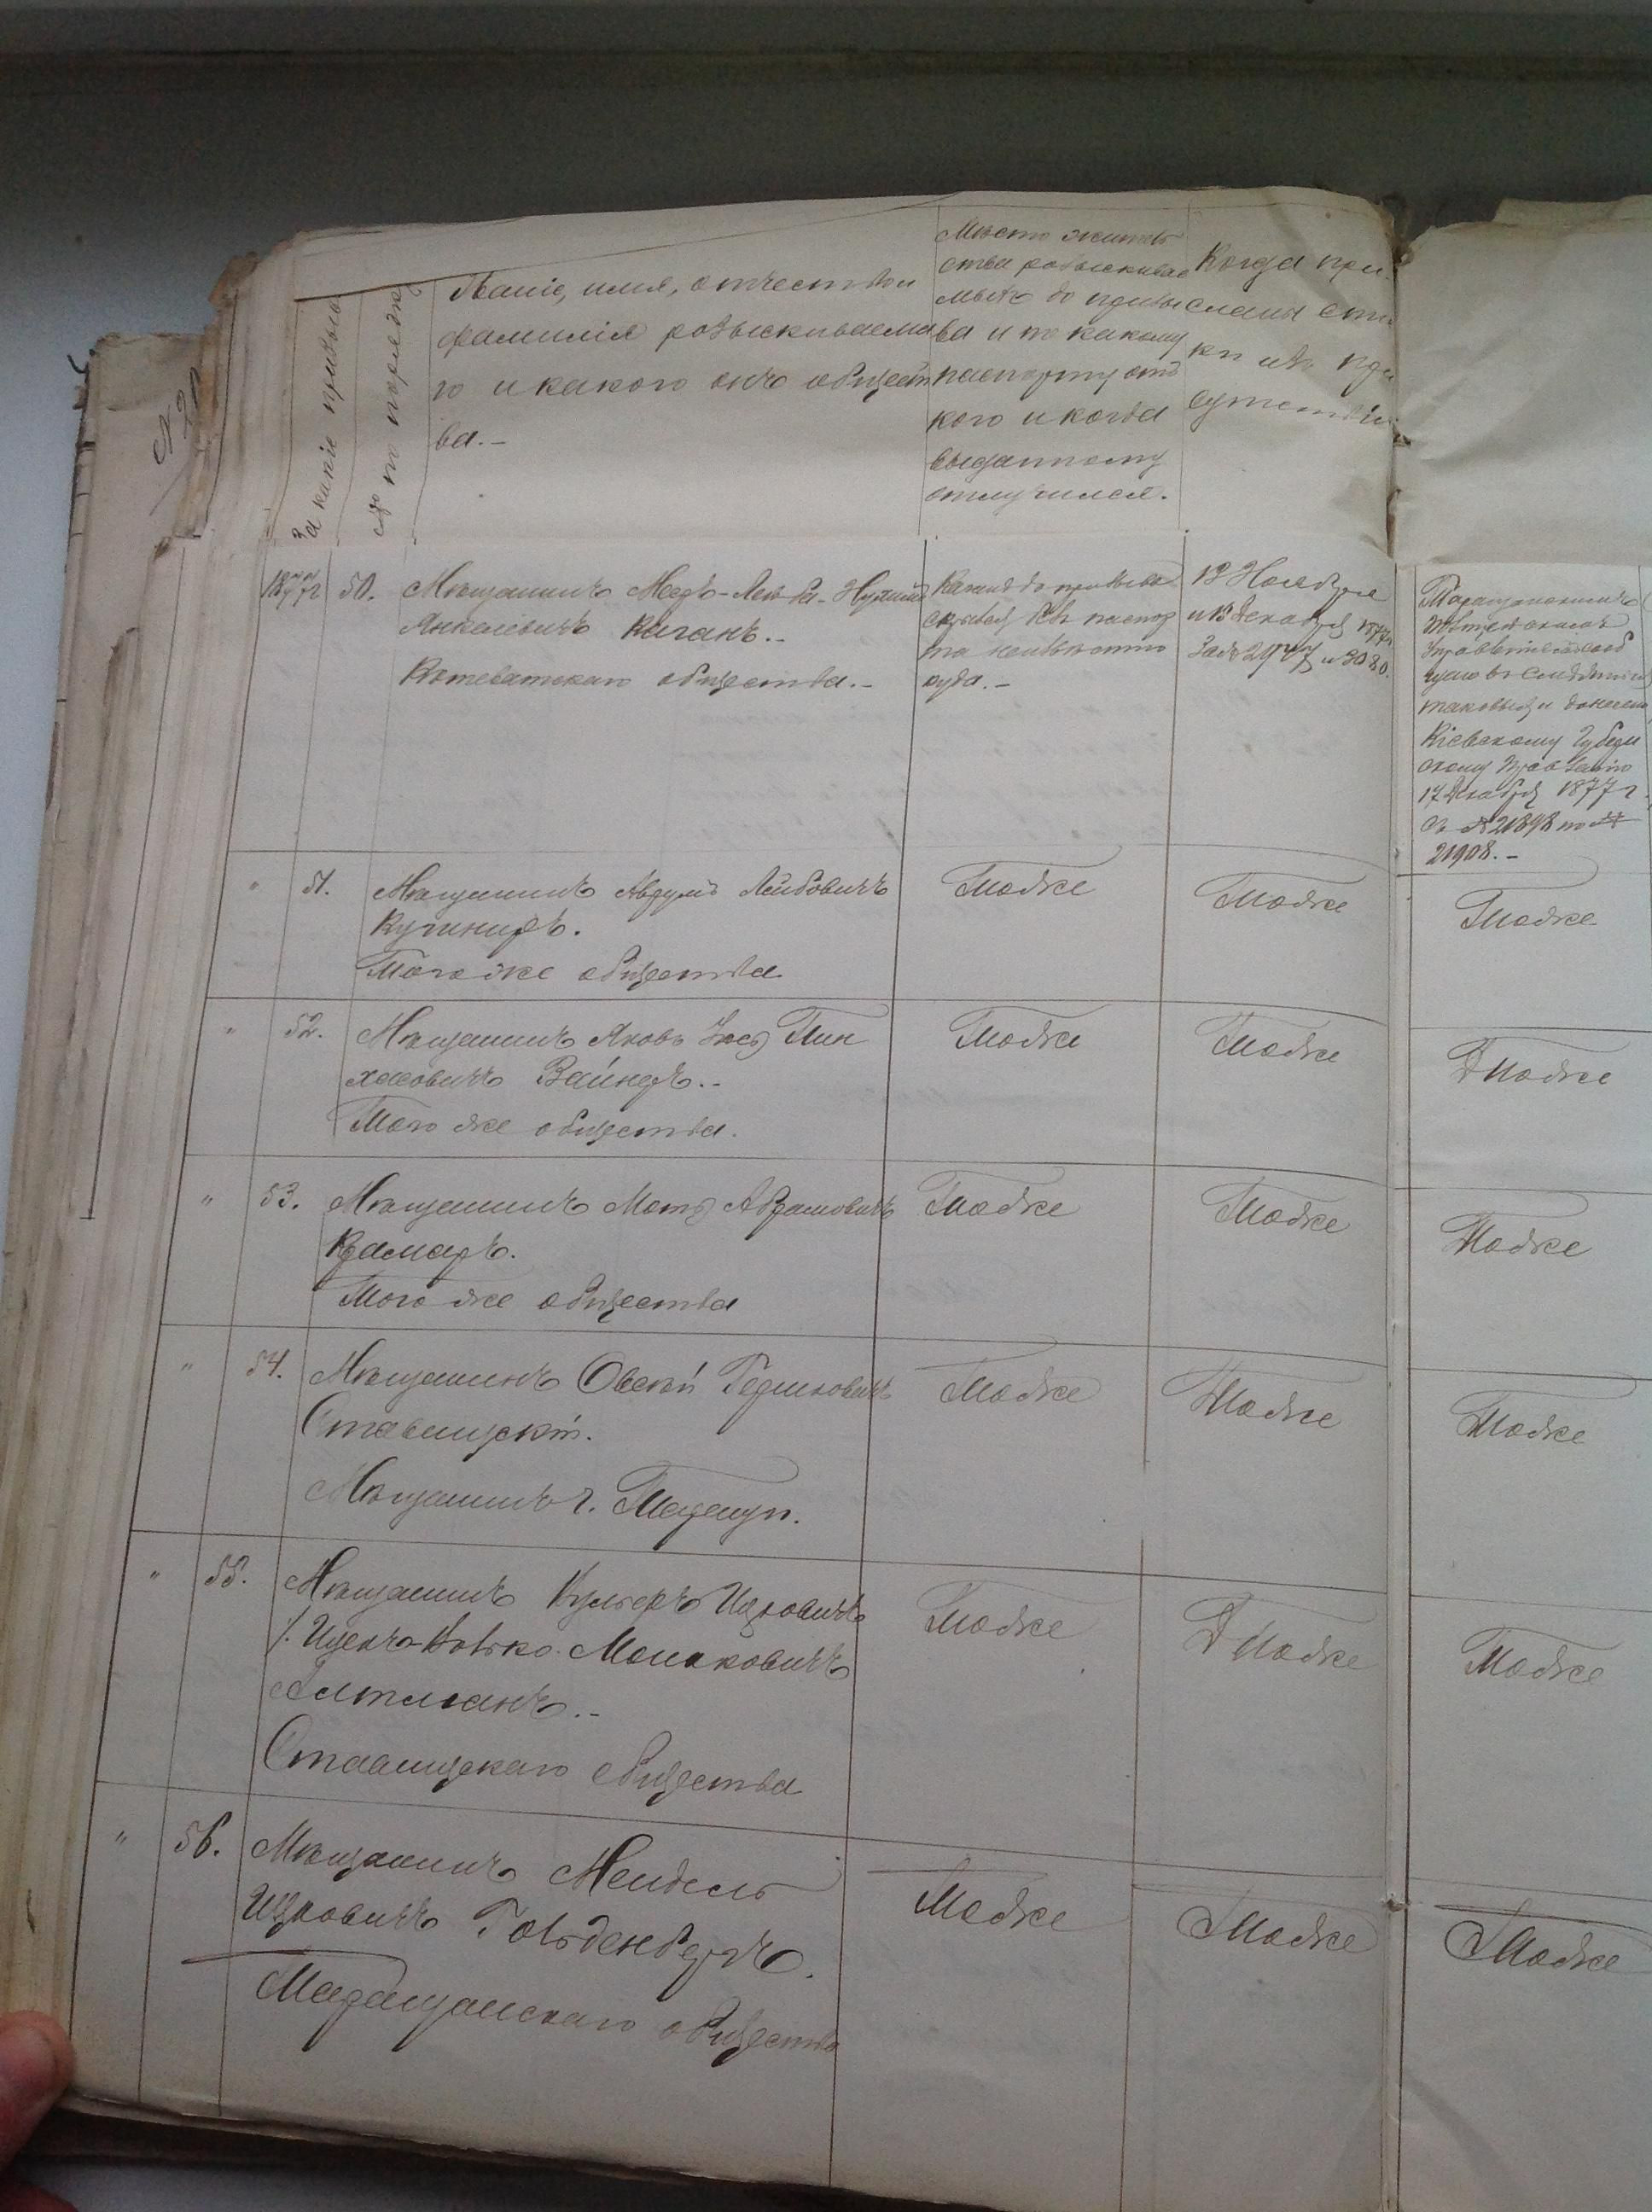 За какіе призывы
№ по порядку
Званіе, имя, отчество и
фамилія розыскиваема
го и какого онъ общест
ва.-
Мѣсто житель
ства розыскивае
маго до призы
ва и по какому
паспорту отъ
кого и когда
выданному
отлучился.
Когда при
сланы спис
ки изъ при
сутствія
1877 г
50.
Мѣщанинъ Меер-Лейба-Нухим
Янкелевичъ Каганъ.-
Кошеватскаго общества.-
до призыва
безъ паспор
та неизвѣстно
куда.-
18 Ноября
и 13 Декабря 1877 г
За № 2977 и 3080.
Таращанскимъ
Полицейскимъ
Управленіемъ
таковыхъ и донесено
Кіевскому Губерн
скому Правленію
17 Декабря 1877 г.
съ № 21898 по №
21908.-
" 51.
Мѣщанинъ Аврумъ Лейбовичъ
Кушниръ.
Того же общества
Тоже
Тоже
Тоже
" 52.
Мѣщанинъ Яковъ Іось Пин
хасовичъ Вайнеръ.-
Того же общества.
Тоже
Тоже
Тоже
" 53.
Мѣщанинъ Мотя Абрамовичъ
Крамаръ.
Того же общества
Тоже
Тоже
Тоже
" 54.
Мѣщанинъ Овсѣй Гершковичъ
Ставищскій.
Мѣщанинъ г. Таращи.
Тоже
Тоже
Тоже
" 55.
Мѣщанинъ Кульеръ Ицковичъ
Мошковичъ
Альтманъ.-
Ставищскаго общества
Тоже
Тоже
Тоже
" 56.
Мѣщанинъ Мендель
Ицковичъ Гольденбергъ.
Таращанскаго общества
Тоже
Тоже
Тоже